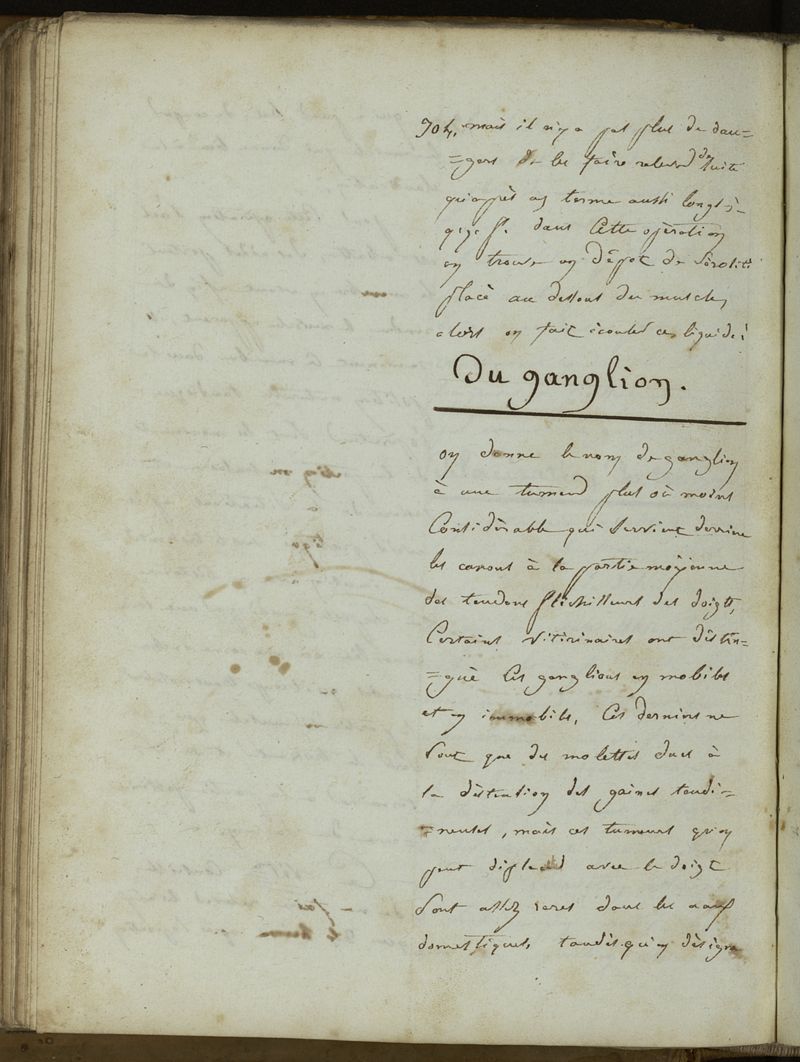 mais il n'y a pas plus de dan=
=gers de les faire relever de suite
qu'après un terme aussi long,
dans Cette opération
on trouve un dépot de sérosité
placé au dessous du muscle,
alors on fait écouler ce liquide;
Du ganglion.
on donne le nom de ganglion
à une tumeur plus où moins
Considérable qui survient derriere
les canons à la partie moÿenne
des tendons fléchisseurs des doigts,
Certains vétérinaires ont distin=
=gué Ces ganglions en mobiles
et en immobiles, Ces derniers ne
sont que des molettes dues à
la distention des gaines tendi=
=neuses, mais ces tumeurs qu'on
peut déplacer avec le doigt
sont assez rares dans les
domestiques, tandis qu'on désigne